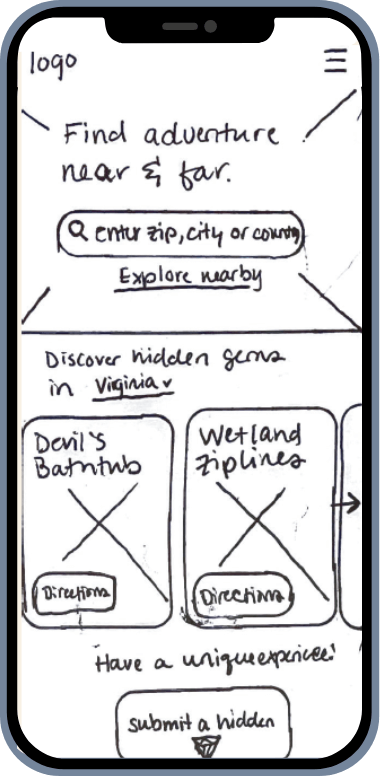 logo
Find adventure
near & far.
enter zip, city or county
Explore nearby
Discover hidden gems
in Virginia
Devil's
Bathtub
Wetland
Ziplines
Directions
Directions
Have a unique experience?
submit a hidden